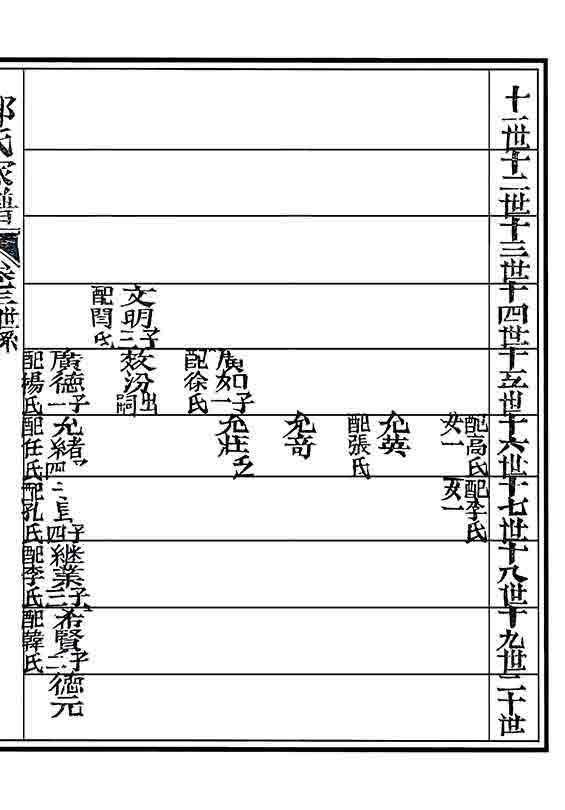 十一世十二世十三世十四世十五世十六世十七世十八世十九世二十世
配高氏配李氏
女一女一
允英
配張氏
允奇
廣如子一允莊乏
配徐氏
文明子三效汾出嗣
配閆氏
廣德子一允緒子四繼業子三希賢子二德元
配楊氏配任氏配孔氏配李氏配韓氏
氏家譜卷三世系